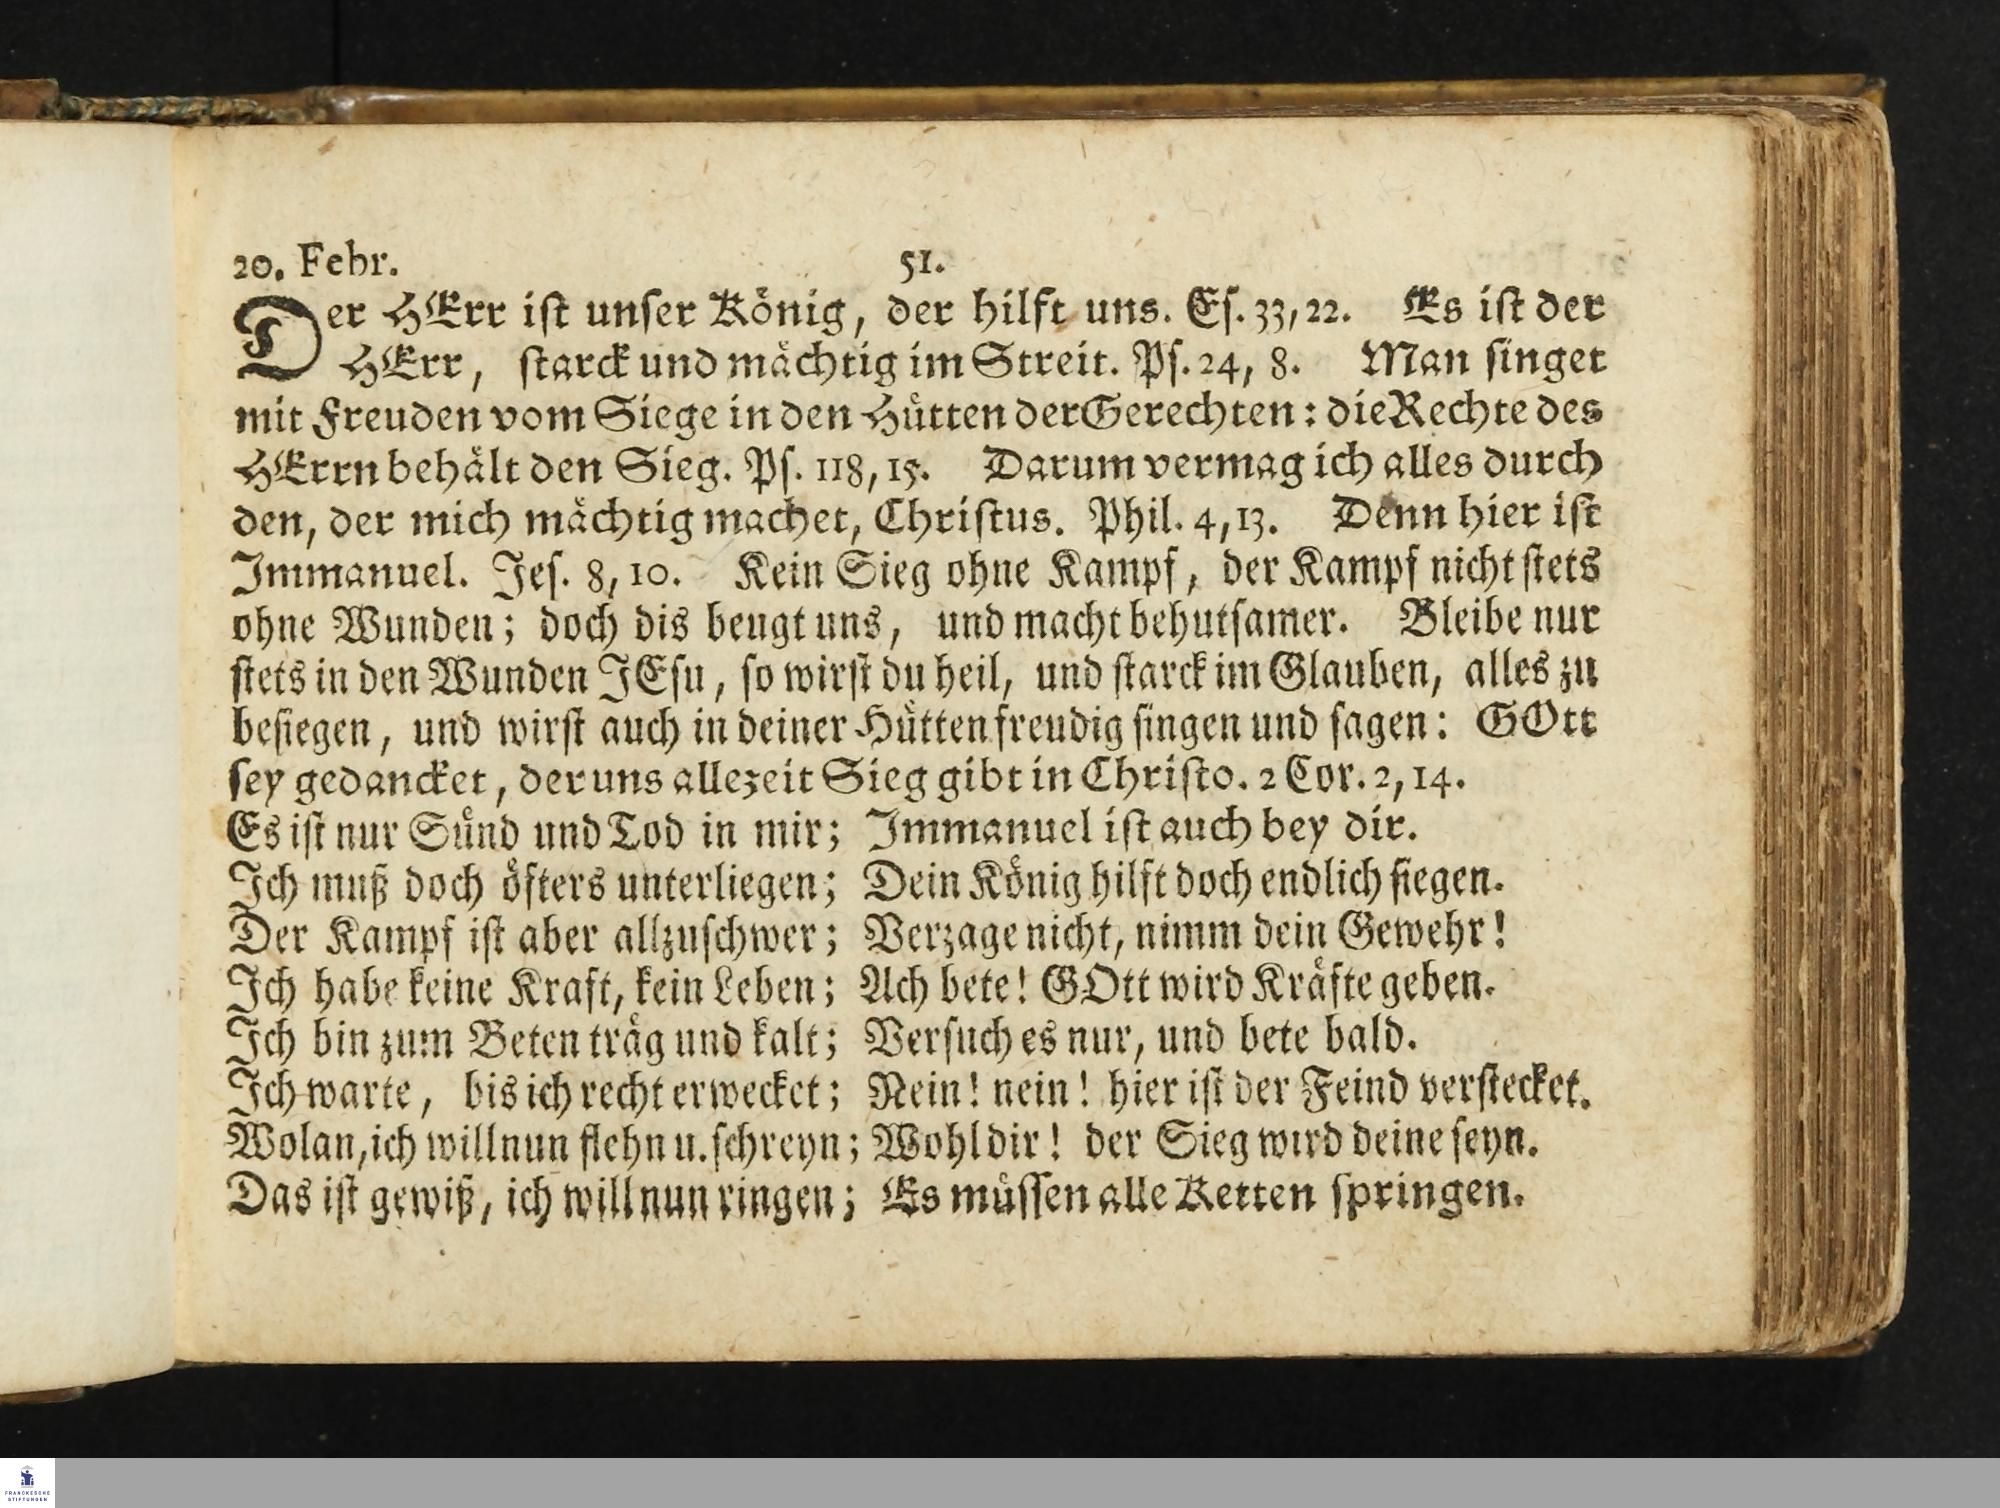 20. Febr. 51.
Der HErr iſt unſer König, der hilft uns. Eſ. 33, 22. Es iſt der
HErr, ſtarck und mächtig im Streit. Pſ. 24, 8. Man ſinget
mit Freuden vom Siege in den Hütten der Gerechten: die Rechte des
HErrn behält den Sieg. Pſ. 118, 15. Darum vermag ich alles durch
den, der mich mächtig machet, Chriſtus. Phil. 4, 13. Denn hier iſt
Immanuel. Jeſ. 8, 10. Kein Sieg ohne Kampf, der Kampf nicht ſtets
ohne Wunden; doch dis beugt uns, und macht behutſamer. Bleibe nur
ſtets in den Wunden JEſu, ſo wirſt du heil, und ſtarck im Glauben, alles zu
beſiegen, und wirſt auch in deiner Hütten freudig ſingen und ſagen: GOtt
ſey gedancket, der uns allezeit Sieg gibt in Chriſto. 2 Cor. 2, 14.
Es iſt nur Sünd und Tod in mir; Immanuel iſt auch bey dir.
Ich muß doch öfters unterliegen; Dein König hilft doch endlich ſiegen.
Der Kampf iſt aber allzuſchwer; Verzage nicht, nimm dein Gewehr!
Ich habe keine Kraft, kein Leben; Ach bete! GOtt wird Kräfte geben.
Ich bin zum Beten träg und kalt; Verſuch es nur, und bete bald.
Ich warte, bis ich recht erwecket; Nein! nein! hier iſt der Feind verſtecket.
Wolan, ich will nun flehn u. ſchreyn; Wohl dir! der Sieg wird deine ſeyn.
Das iſt gewiß, ich will nun ringen; Es müſſen alle Ketten ſpringen.
FRANCKESCHE
STIFTUNGEN